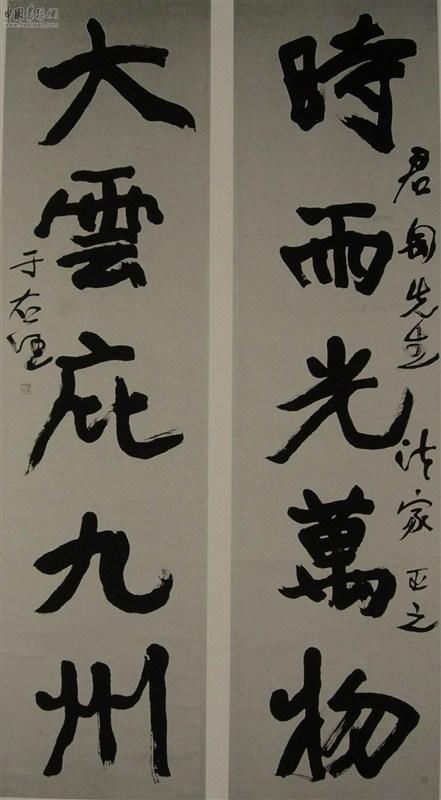 時雨光萬物
君匋先生 法家正之
大雲庇九州
于右任